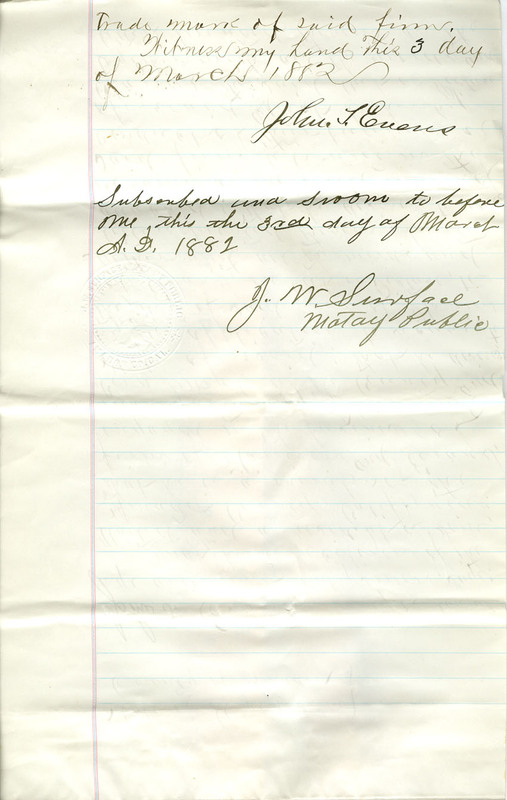 trade mark of said firm.
Witness my hand this 3 day
of March 1882
John T Evans
Subscribed and sworn to before
me, this the 3rd day of March
A. D. 1882
J. W. Surface
Notay Public